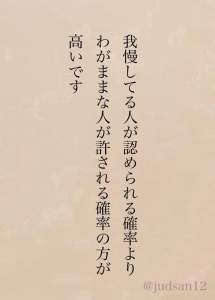 我慢してる人が認められる確率より
わがままな人が許される確率の方が
高いです
@judsan12